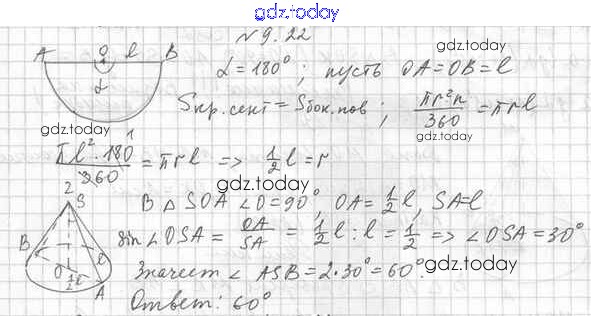 gdz.today
№ 9.22
gdz.today
A O l B
α
α = 180° ; пусть OA = OB = l
gdz.today
Sкр.сект = Sбок.пов ; πr²n/360 = πrl
gdz.today
gdz.today
πl²·180/360 = πrl => 1/2 l = r
1
2
gdz.today
S
В △ SOA ∠O = 90°, OA = 1/2 l, SA = l
gdz.today
sin ∠OSA = OA/SA = 1/2 l : l = 1/2 => ∠OSA = 30°
B l
O 1/2 l A
Значит ∠ ASB = 2·30° = 60°.
gdz.today
Ответ: 60°
gdz.today